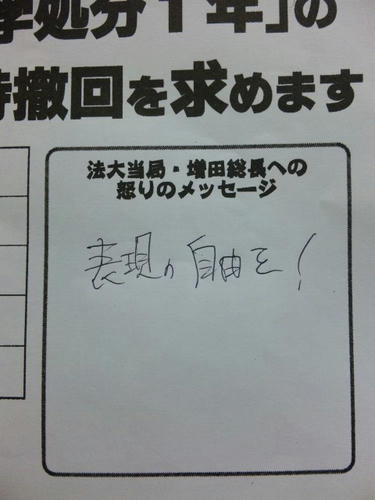 学処分1年」の
時撤回を求めます
法大当局・増田総長への
怒りのメッセージ
表現の自由を!